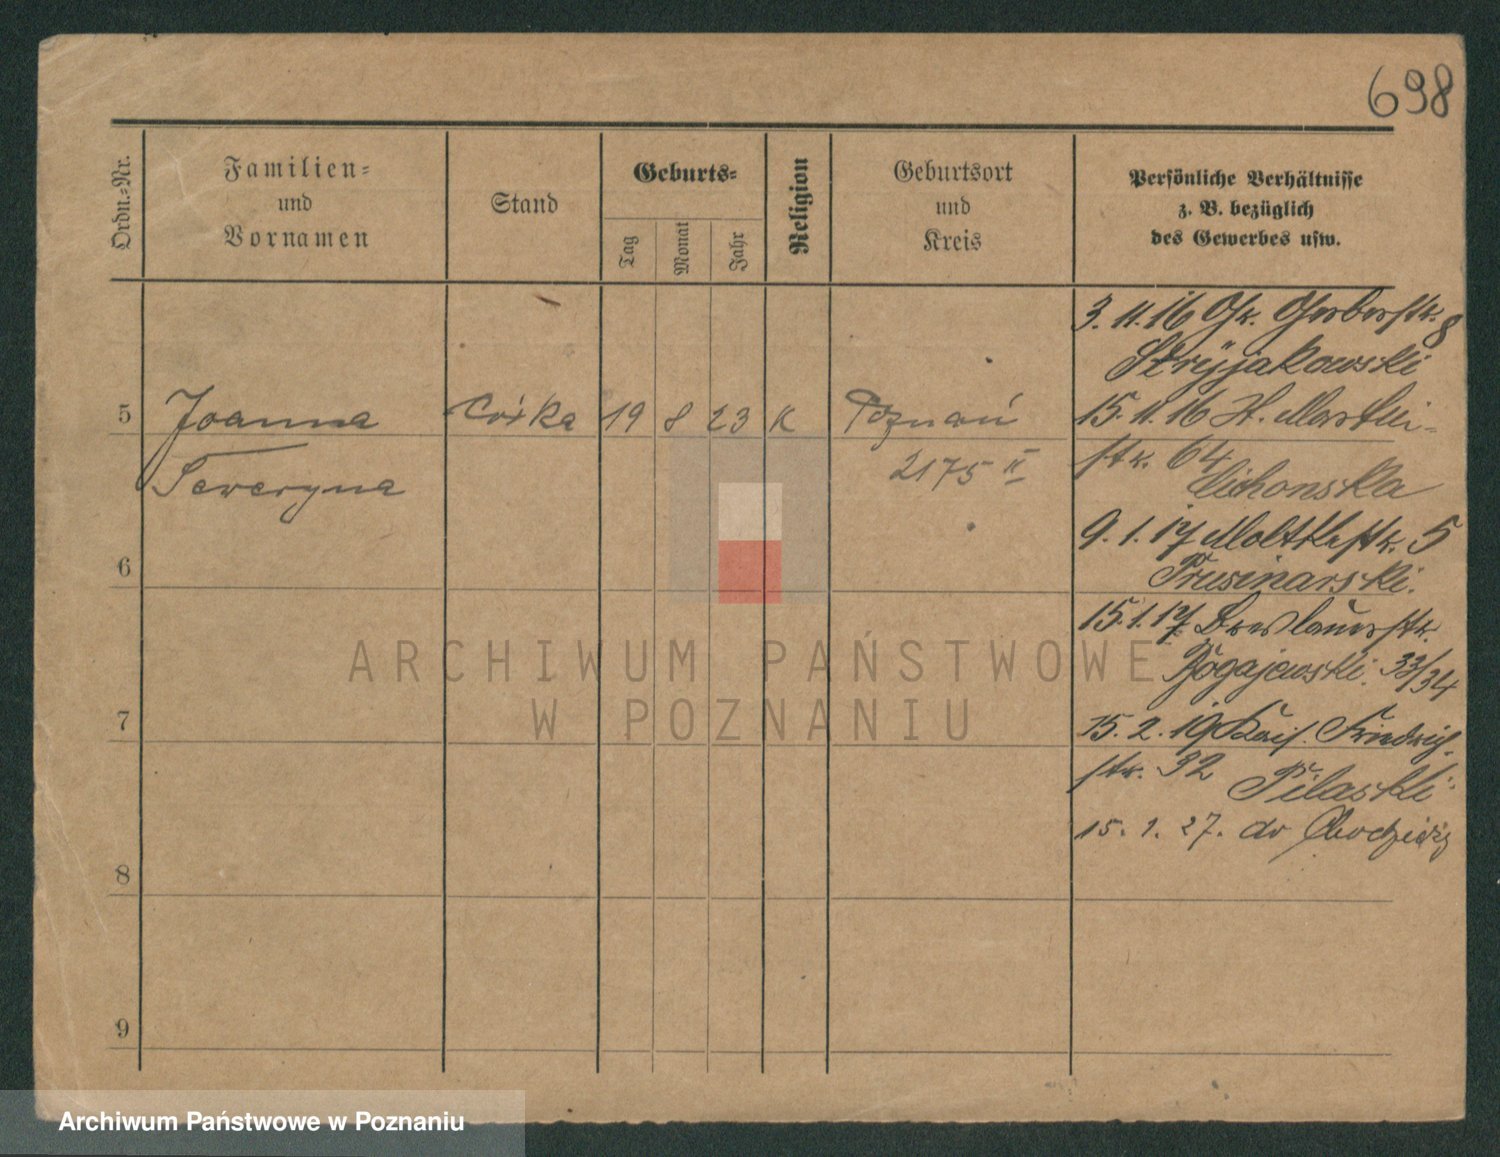 698
Ordn.-Nr.
Familien-
und
Vornamen
Stand
Geburts-
Tag
Monat
Jahr
Religion
Geburtsort
und
Kreis
Persönliche Verhältnisse
z. B. bezüglich
des Gewerbes usw.
3. 11. 16 Gerberstr. 8
Stryjakowski
5
Joanna
córka
19
8
23
K
Poznań
15. 11. 16 St. Martin-
str. 64
Seweryna
2175 II
Cichonska
9. 1. 17 Moltkestr. 5
6
Prusinarski.
15. 1. 17 Breslauerstr.
Rogajewski. 33/34
ARCHIWUM PAŃSTWOWE
W POZNANIU
7
15. 2. 19 Kais. Friedrich-
str. 32
Pilaski
15. 1. 27. do
8
9
Archiwum Państwowe w Poznaniu